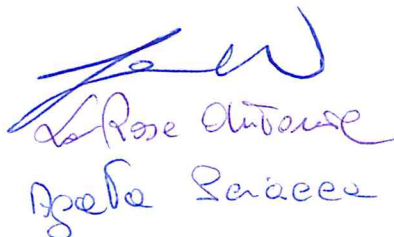 La Rosa Antonio
Agata Sciacca